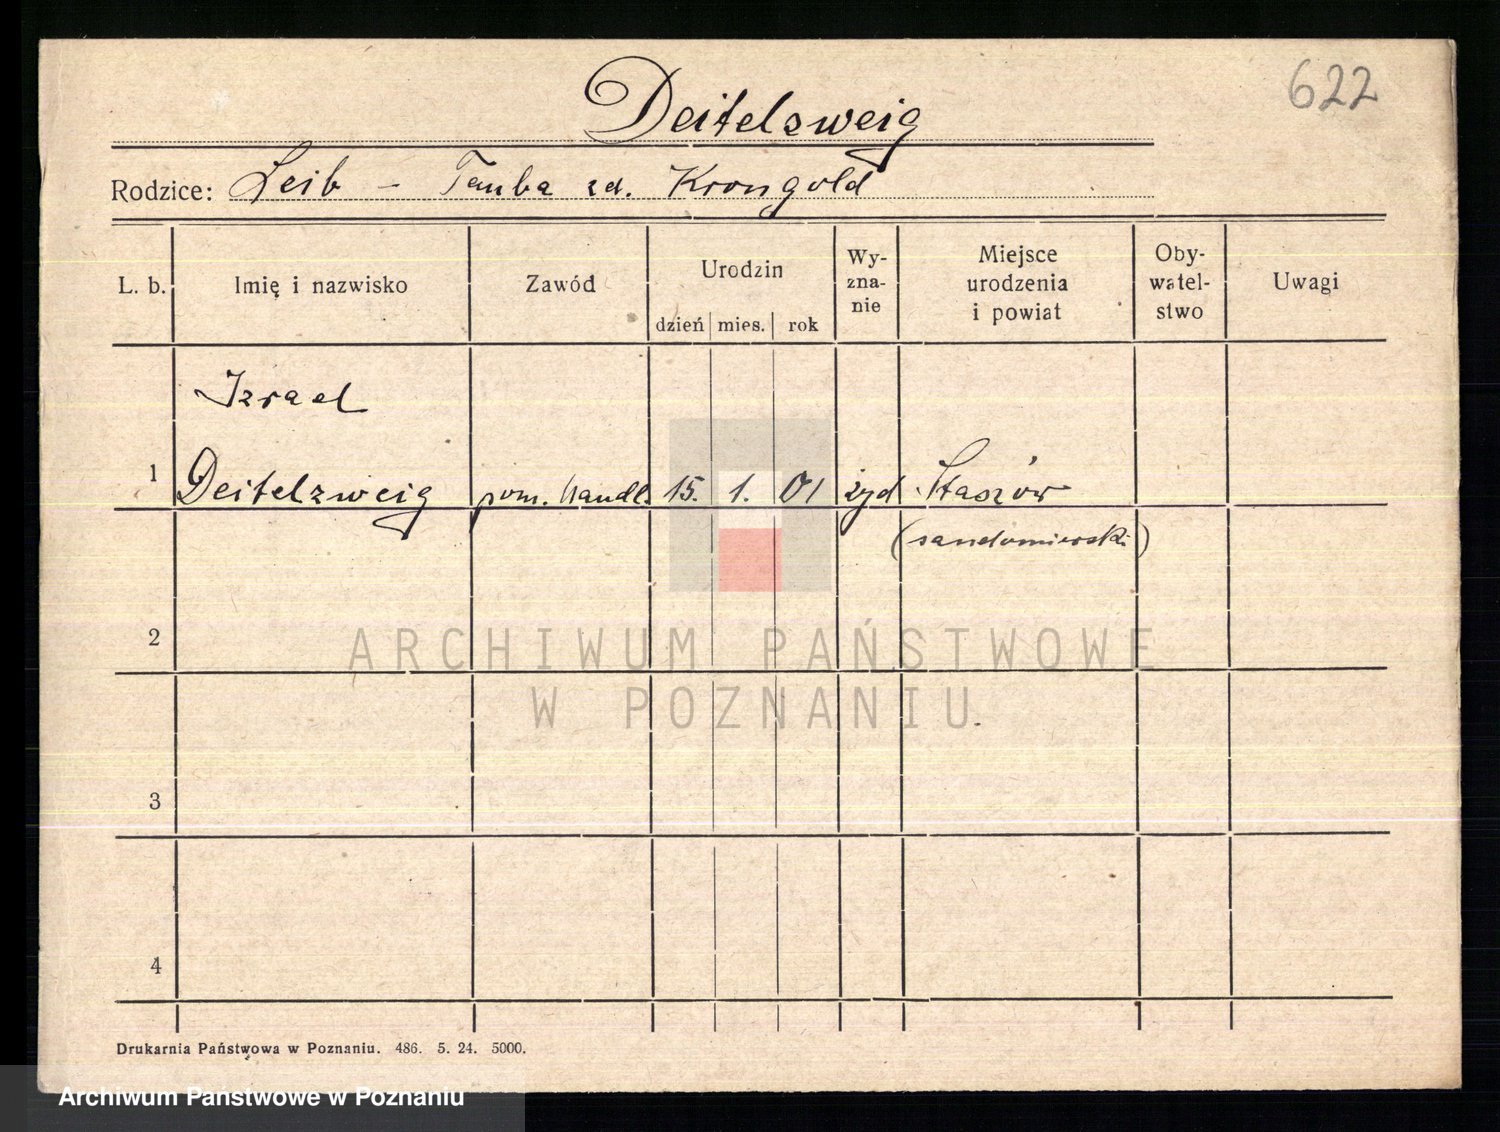 622
Deitelzweig
Rodzice: Leib - Tauba zd. Krongold
L. b. Imię i nazwisko Zawód Urodzin Wy-zna-nie Miejsce urodzenia i powiat Oby-watel-stwo Uwagi
dzień mies. rok
Izrael
1 Deitelzweig pom. handl. 15. 1. 01 żyd Staszów
(sandomierski)
2
ARCHIWUM PAŃSTWOWE
W POZNANIU
3
4
Drukarnia Państwowa w Poznaniu. 486. 5. 24. 5000.
Archiwum Państwowe w Poznaniu